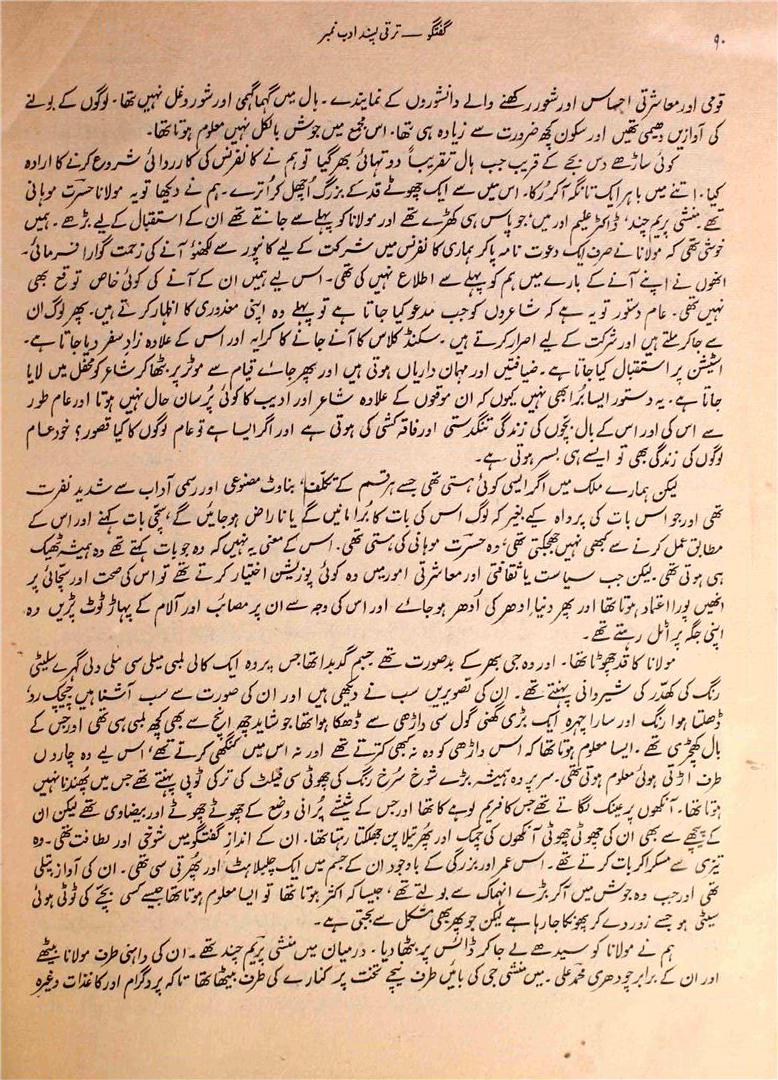 ۹۰
گفتگو — ترقی پسند ادب نمبر
قومی اور معاشرتی احساس اور شعور رکھنے والے دانشوروں کے نمایندے ۔ ہال میں گہما گہمی اور شور و غل نہیں تھا۔ لوگوں کے بولنے
کی آوازیں دھیمی تھیں اور سکون کچھ ضرورت سے زیادہ ہی تھا۔ اس مجمع میں جوش بالکل نہیں معلوم ہوتا تھا۔
کوئی ساڑھے دس بجے کے قریب جب ہال تقریباً دو تہائی بھر گیا تو ہم نے کانفرنس کی کارروائی شروع کرنے کا ارادہ
کیا۔ اتنے میں باہر ایک تانگہ آ کر رُکا۔ اس میں سے ایک چھوٹے قد کے بزرگ اُچھل کر اُترے۔ ہم نے دیکھا تو یہ مولانا حسرت موہانی
تھے۔ منشی پریم چند، ڈاکٹر علیم اور میں، جو پاس ہی کھڑے تھے اور مولانا کو پہلے سے جانتے تھے ان کے استقبال کے لیے بڑھے۔ ہمیں
خوشی تھی کہ مولانا نے صرف ایک دعوت نامہ پاکر ہماری کانفرنس میں شرکت کے لیے کانپور سے لکھنؤ آنے کی زحمت گوارا فرمائی۔
انھوں نے اپنے آنے کے بارے میں ہم کو پہلے سے اطلاع نہیں کی تھی۔ اس لیے ہمیں ان کے آنے کی کوئی خاص توقع بھی
نہیں تھی۔ عام دستور تو یہ ہے کہ شاعروں کو جب مدعو کیا جاتا ہے تو پہلے وہ اپنی معذوری کا اظہار کرتے ہیں۔ پھر لوگ ان
سے جاکر ملتے ہیں اور شرکت کے لیے اصرار کرتے ہیں ۔ سکنڈ کلاس کا آنے جانے کا کرایہ اور اس کے علاوہ زادِ سفر دیا جاتا ہے۔
اسٹیشن پر استقبال کیا جاتا ہے۔ ضیافتیں اور مہمان داریاں ہوتی ہیں اور پھر جائے قیام سے موٹر پر بٹھا کر شاعر کو محفل میں لایا
جاتا ہے۔ یہ دستور ایسا بُرا بھی نہیں کیوں کہ ان موقعوں کے علاوہ شاعر اور ادیب کا کوئی پُرسان حال نہیں ہوتا اور عام طور
سے اس کی اور اس کے بال بچوں کی زندگی تنگدستی اور فاقہ کشی کی ہوتی ہے اور اگر ایسا ہے تو عام لوگوں کا کیا قصور؟ خود عام
لوگوں کی زندگی بھی تو ایسے ہی بسر ہوتی ہے۔
لیکن ہمارے ملک میں اگر ایسی کوئی ہستی تھی جسے ہر قسم کے تکلّف، بناوٹ مصنوعی اور رسمی آداب سے شدید نفرت
تھی اور جو اس بات کی پرواہ کیے بغیر کہ لوگ اس کی بات کا بُرا مانیں گے یا ناراض ہو جائیں گے، سچّی بات کہنے اور اس کے
مطابق عمل کرنے سے کبھی نہیں جھجکتی تھی، وہ حسرت موہانی کی ہستی تھی۔ اس کے معنی یہ نہیں کہ وہ جو بات کہتے تھے وہ ہمیشہ ٹھیک
ہی ہوتی تھی۔ لیکن جب سیاست یا ثقافتی اور معاشرتی امور میں وہ کوئی پوزیشن اختیار کرتے تھے تو اس کی صحت اور سچّائی پر
انھیں پورا اعتماد ہوتا تھا اور پھر دنیا ادھر کی اُدھر ہو جائے اور اس کی وجہ سے ان پر مصائب اور آلام کے پہاڑ ٹوٹ پڑیں وہ
اپنی جگہ پر اٹل رہتے تھے۔
مولانا کا قد چھوٹا تھا۔ اور وہ جی بھر کے بدصورت تھے جسم گدبدا تھا جس پر وہ ایک کالی لمبی میلی سی ملی دلی گہرے سلیٹی
رنگ کی کھدّر کی شیروانی پہنتے تھے۔ ان کی تصویریں سب نے دیکھی ہیں اور ان کی صورت سے سب آشنا ہیں چیچک رو،
ڈھلتا ہوا رنگ اور سارا چہرہ ایک بڑی گھنی گول سی داڑھی سے ڈھکا ہوا تھا جو شاید چھ انچ سے بھی کچھ لمبی ہی تھی اور جس کے
بال کھچڑی تھے۔ ایسا معلوم ہوتا تھا کہ اس داڑھی کو وہ نہ کبھی کترتے تھے اور نہ اس میں کنگھی کرتے تھے، اس لیے وہ چاروں
طرف اڑتی ہوئی معلوم ہوتی تھی۔ سر پر وہ ہمیشہ بڑے شوخ سُرخ رنگ کی چھوٹی سی فیلٹ کی ترکی ٹوپی پہنتے تھے جس میں پھُندنا نہیں
ہوتا تھا۔ آنکھوں پر عینک لگاتے تھے جس کا فریم لوہے کا تھا اور جس کے شیشے پُرانی وضع کے چھوٹے چھوٹے اور بیضاوی تھے لیکن ان
کے پیچھے سے بھی ان کی چھوٹی چھوٹی آنکھوں کی چمک اور پھرتیلا پن جھلکتا رہتا تھا۔ ان کے انداز گفتگو میں شوخی اور لطافت تھی۔ وہ
تیزی سے مسکرا کر بات کرتے تھے۔ اس عمر اور بزرگی کے باوجود ان کے جسم میں ایک چلبلاہٹ اور پھُرتی سی تھی۔ ان کی آواز پتلی
تھی اور جب وہ جوش میں آکر بڑے انہماک سے بولتے تھے، جیسا کہ اکثر ہوتا تھا تو ایسا معلوم ہوتا تھا جیسے کسی بچے کی ٹوٹی ہوئی
سیٹی ہو جسے زور دے کر پھونکا جارہا ہے لیکن جو پھر بھی مشکل سے بجتی ہے۔
ہم نے مولانا کو سیدھے لے جا کر ڈائس پر بٹھا دیا۔ درمیان میں منشی پریم چند تھے۔ ان کی داہنی طرف مولانا بیٹھے
اور ان کے برابر چودھری محمد علی ۔ میں منشی جی کی بائیں طرف نیچے تخت پر کنارے کی طرف بیٹھا تھا تاکہ پروگرام اور کاغذات وغیرہ